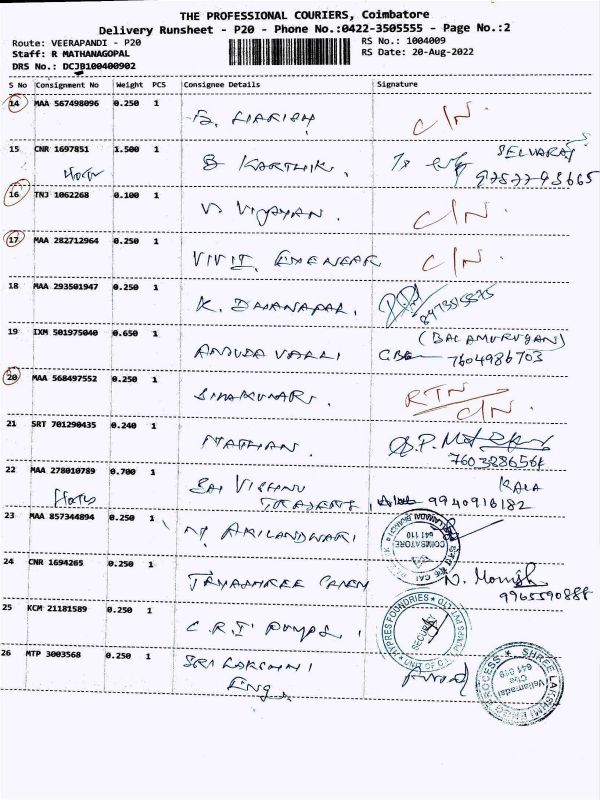 THE PROFESSIONAL COURIERS, Coimbatore
Delivery Runsheet - P20 - Phone No.:0422-3505555 - Page No.:2
Route: VEERAPANDI - P20 RS No.: 1004009
Staff: R MATHANAGOPAL RS Date: 20-Aug-2022
DRS No.: DCJB100400902
S No Consignment No Weight PCS Consignee Details Signature
14 MAA 567498096 0.250 1 B. HARISH C/N.
15 CNR 1697851 1.500 1 B KARTHIK. SELVARAJ
9787793665
16 TNJ 1062268 0.100 1 V VIJAYAN. C/N.
17 MAA 282712964 0.250 1 C/N.
18 MAA 293501947 0.250 1 K. DHANAPAL.
19 IXM 501975040 0.650 1 (BALAMURUGAN)
7604986703
20 MAA 568497552 0.250 1 SIVAKUMAR. RTN
C/N.
21 SRT 701290435 0.240 1 NATHAN.
22 MAA 278010789 0.700 1 SAI VISHNU KALA
TRADERS, 9940916182
23 MAA 857344894 0.250 1 COIMBATORE
641 110
24 CNR 1694265 0.250 1 N.
9965590888
25 KCM 21181589 0.250 1 C.R.I PUMPS. SECURITY
26 MTP 3003568 0.250 1 SRI LAKSHMI SHREE LAKSHMI ENGG PROCESS
Engg.